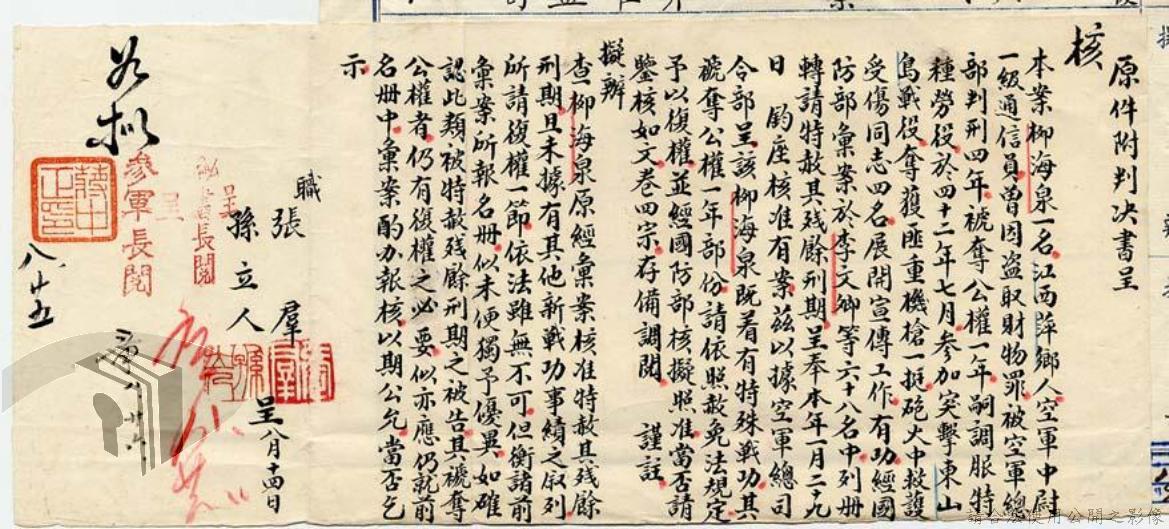 原件附判决書呈
核
本案柳海泉一名江西萍鄉人空軍中尉
一級通信員曾因盜取財物罪被空軍總
部判刑四年褫奪公權一年嗣調服特
種勞役於四十二年七月參加突擊東山
島戰役奪獲匪重機槍一挺砲火中救護
受傷同志四名展開宣傳工作有功經國
防部彙案於李文卿等六十八名中列冊
轉請特赦其殘餘刑期呈奉本年一月二十九
日 鈞座核准有案茲以據空軍總司
令部呈該柳海泉既着有特殊戰功其
褫奪公權一年部份請依照赦免法規定
予以復權並經國防部核擬照准當否請
鑒核如文卷四宗存備調閱 謹註
擬辦
查柳海泉原經彙案核准特赦其殘餘
刑期且未據有其他新戰功事績之敘列
所請復權一節依法雖無不可但衡諸前
彙案所報名冊似未便獨予優異如確
認此類被特赦殘餘刑期之被告其褫奪
公權者仍有復權之必要似亦應仍就前
名冊中彙案酌办報核以期公允當否乞
示
職
張 羣
孫立人
呈 八月十四日
呈
秘書長閱
呈
參軍長閱
如擬
蔣中正印
八廿五
請合法使用公開之影像